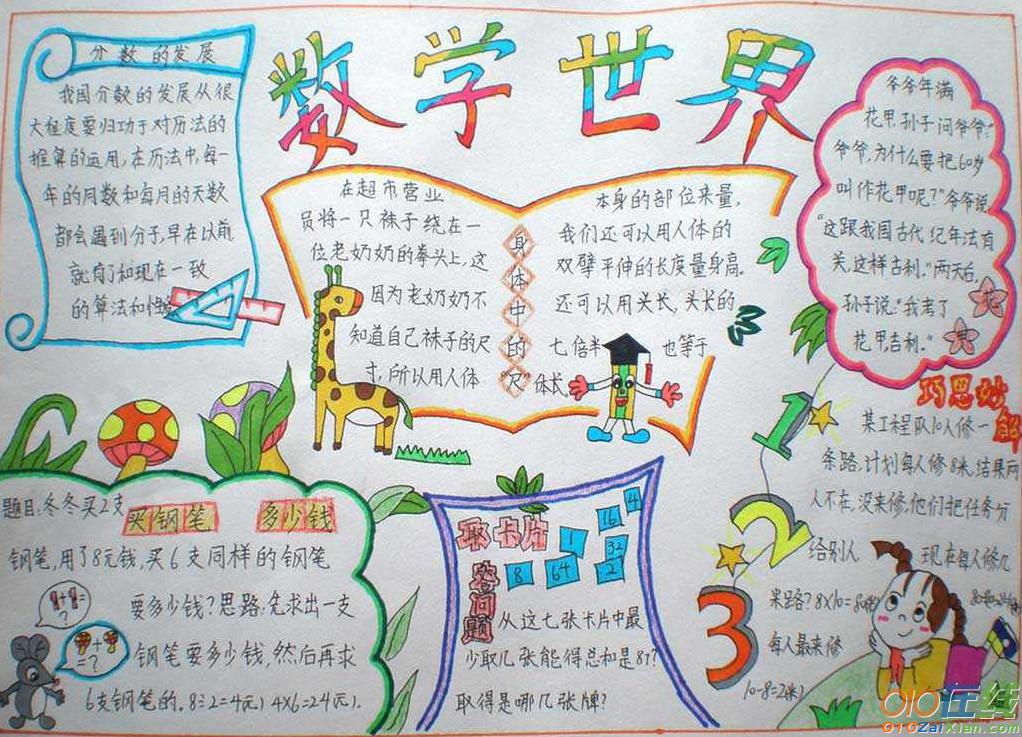 数学世界
分数的发展
我国分数的发展从很
大程度要归功于对历法的
推算的运用,在历法中,每一
年的月数和每月的天数
都会遇到分子,早在以前
就有了和现在一致
的算法和
在超市营业
员将一只袜子绕在一
位老奶奶的拳头上,这
因为老奶奶不
知道自己袜子的尺
寸,所以用人体
身体中的“尺”
本身的部位来量,
我们还可以用人体的
双臂平伸的长度量身高。
还可以用头长,头长的
七倍半也等于
体长
爷爷年满
花甲,孙子问爷爷:“
爷爷,为什么要把60岁
叫作花甲呢?”爷爷说
“这跟我国古代纪年法有
关,这样吉利。”两天后,
孙子说:“我考了
花甲吉利。”
花
买钢笔 多少钱
题目:冬冬买2支
钢笔,用了8元钱,买6支同样的钢笔
要多少钱?思路:先求出一支
钢笔要多少钱,然后再求
6支钢笔的。8÷2=4元) 4×6=24元).
+ = ?
+ = ?
取卡片
答问题
1 16 4
8 64 32 2
从这七张卡片中最
少取几张能得总和是87?
取得是哪几张牌?
1
2
3
巧思妙解
某工程队10人修一
条路,计划每人修8米,结果两
人不在,没来修,他们把任务分
给别人 现在每人修几
米路?8×10=80
每人最来修
10-8=2
010在线
010ZaiXian.com